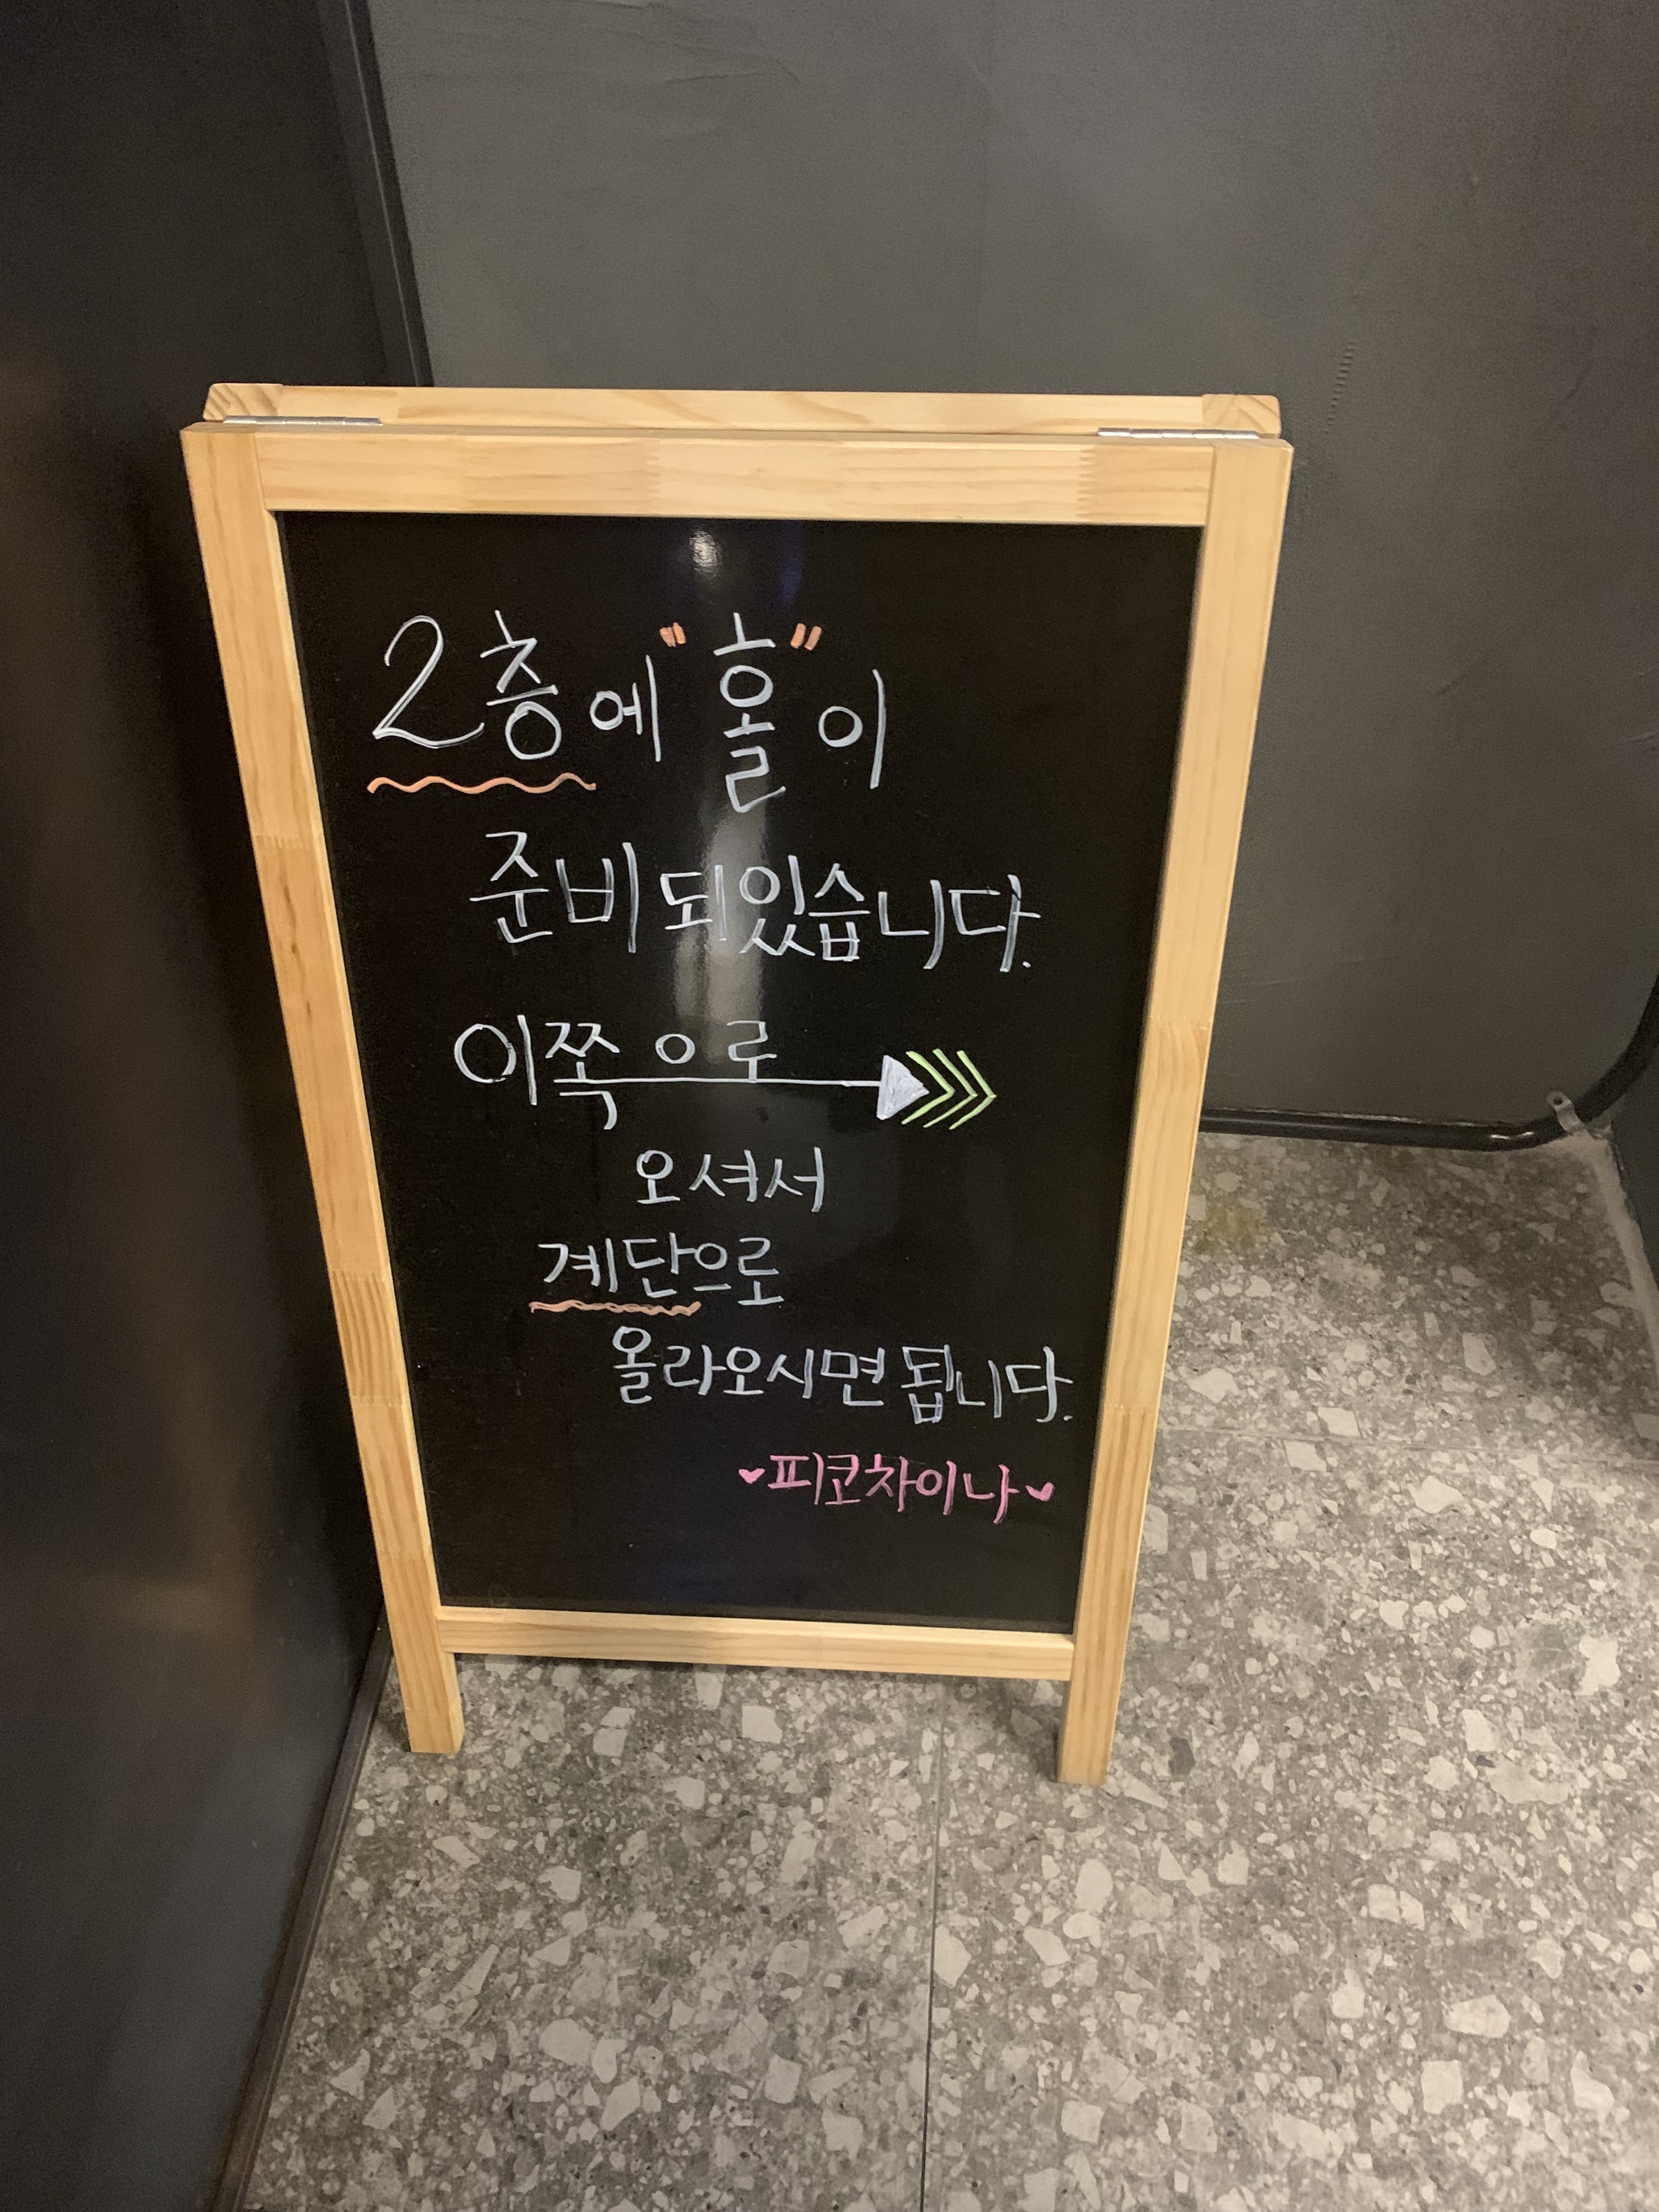 2층에 "홀"이
준비되있습니다.
이쪽으로
오셔서
계단으로
올라오시면 됩니다.
♥피코차이나♥